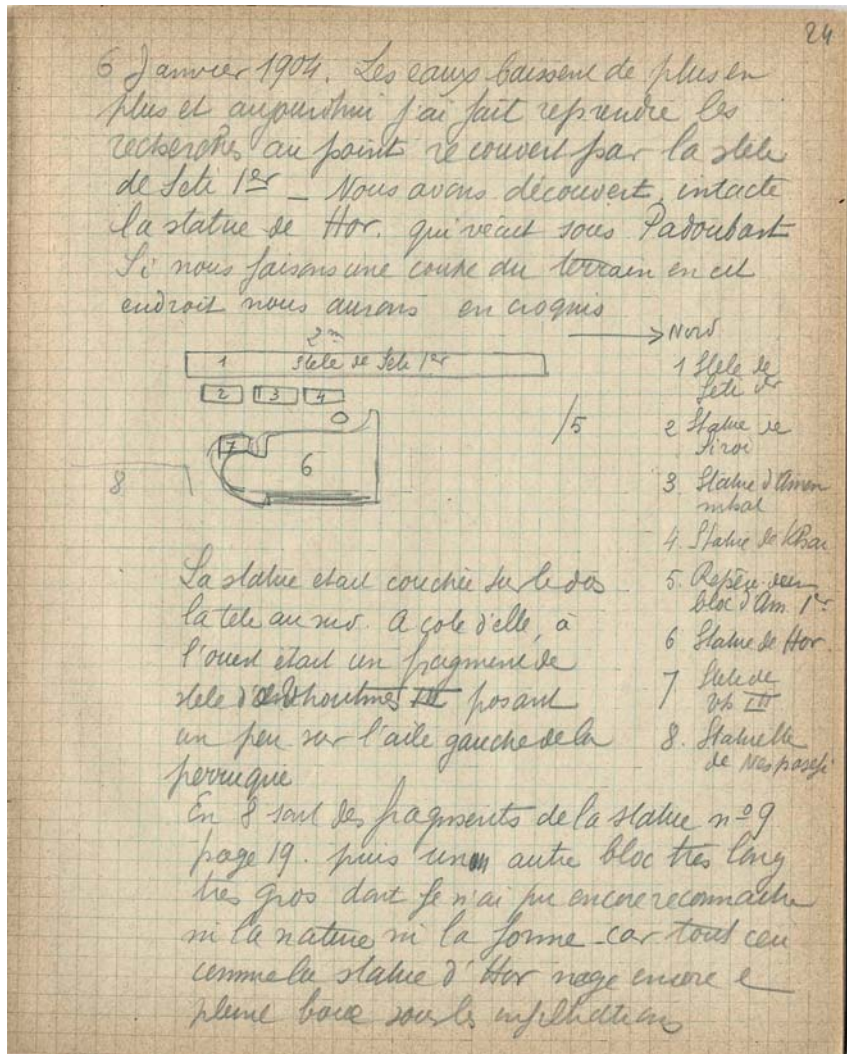 24
6 Janvier 1904. Les eaux baissent de plus en
plus et aujourdhui j'ai fait reprendre les
recherches au point recouvert par la stele
de Seti 1er _ Nous avons découvert, intacte
la statue de Hor. qui vécut sous Padoubast
Si nous faisons une coupe du terrain en cet
endroit nous aurons en croquis
2m
Nord
1 Stele de Seti 1er
2 3 4
5
7
6
8
1 Stele de
Seti 1er
2 Statue de
Siroi
3 Statue d'Amen
mhat
4. Statue de Khai
5. Repère
bloc d'Am. 1er
6 Statue de Hor
7 Stele de
th III
8. Statuette
de
La statue etait couchée sur le dos
la tete au sud. A coté d'elle, à
l'ouest etait un fragment de
stele d' Thoutmes III posant
un peu sur l'aile gauche de la
perruque
En 8 sont des fragments de la statue nº 9
page 19. puis un autre bloc tres long
tres gros dont je n'ai pu encore reconnaitre
ni la nature ni la forme car tout ceci
comme la statue d'Hor nage encore e
pleine boue sous les infiltrations